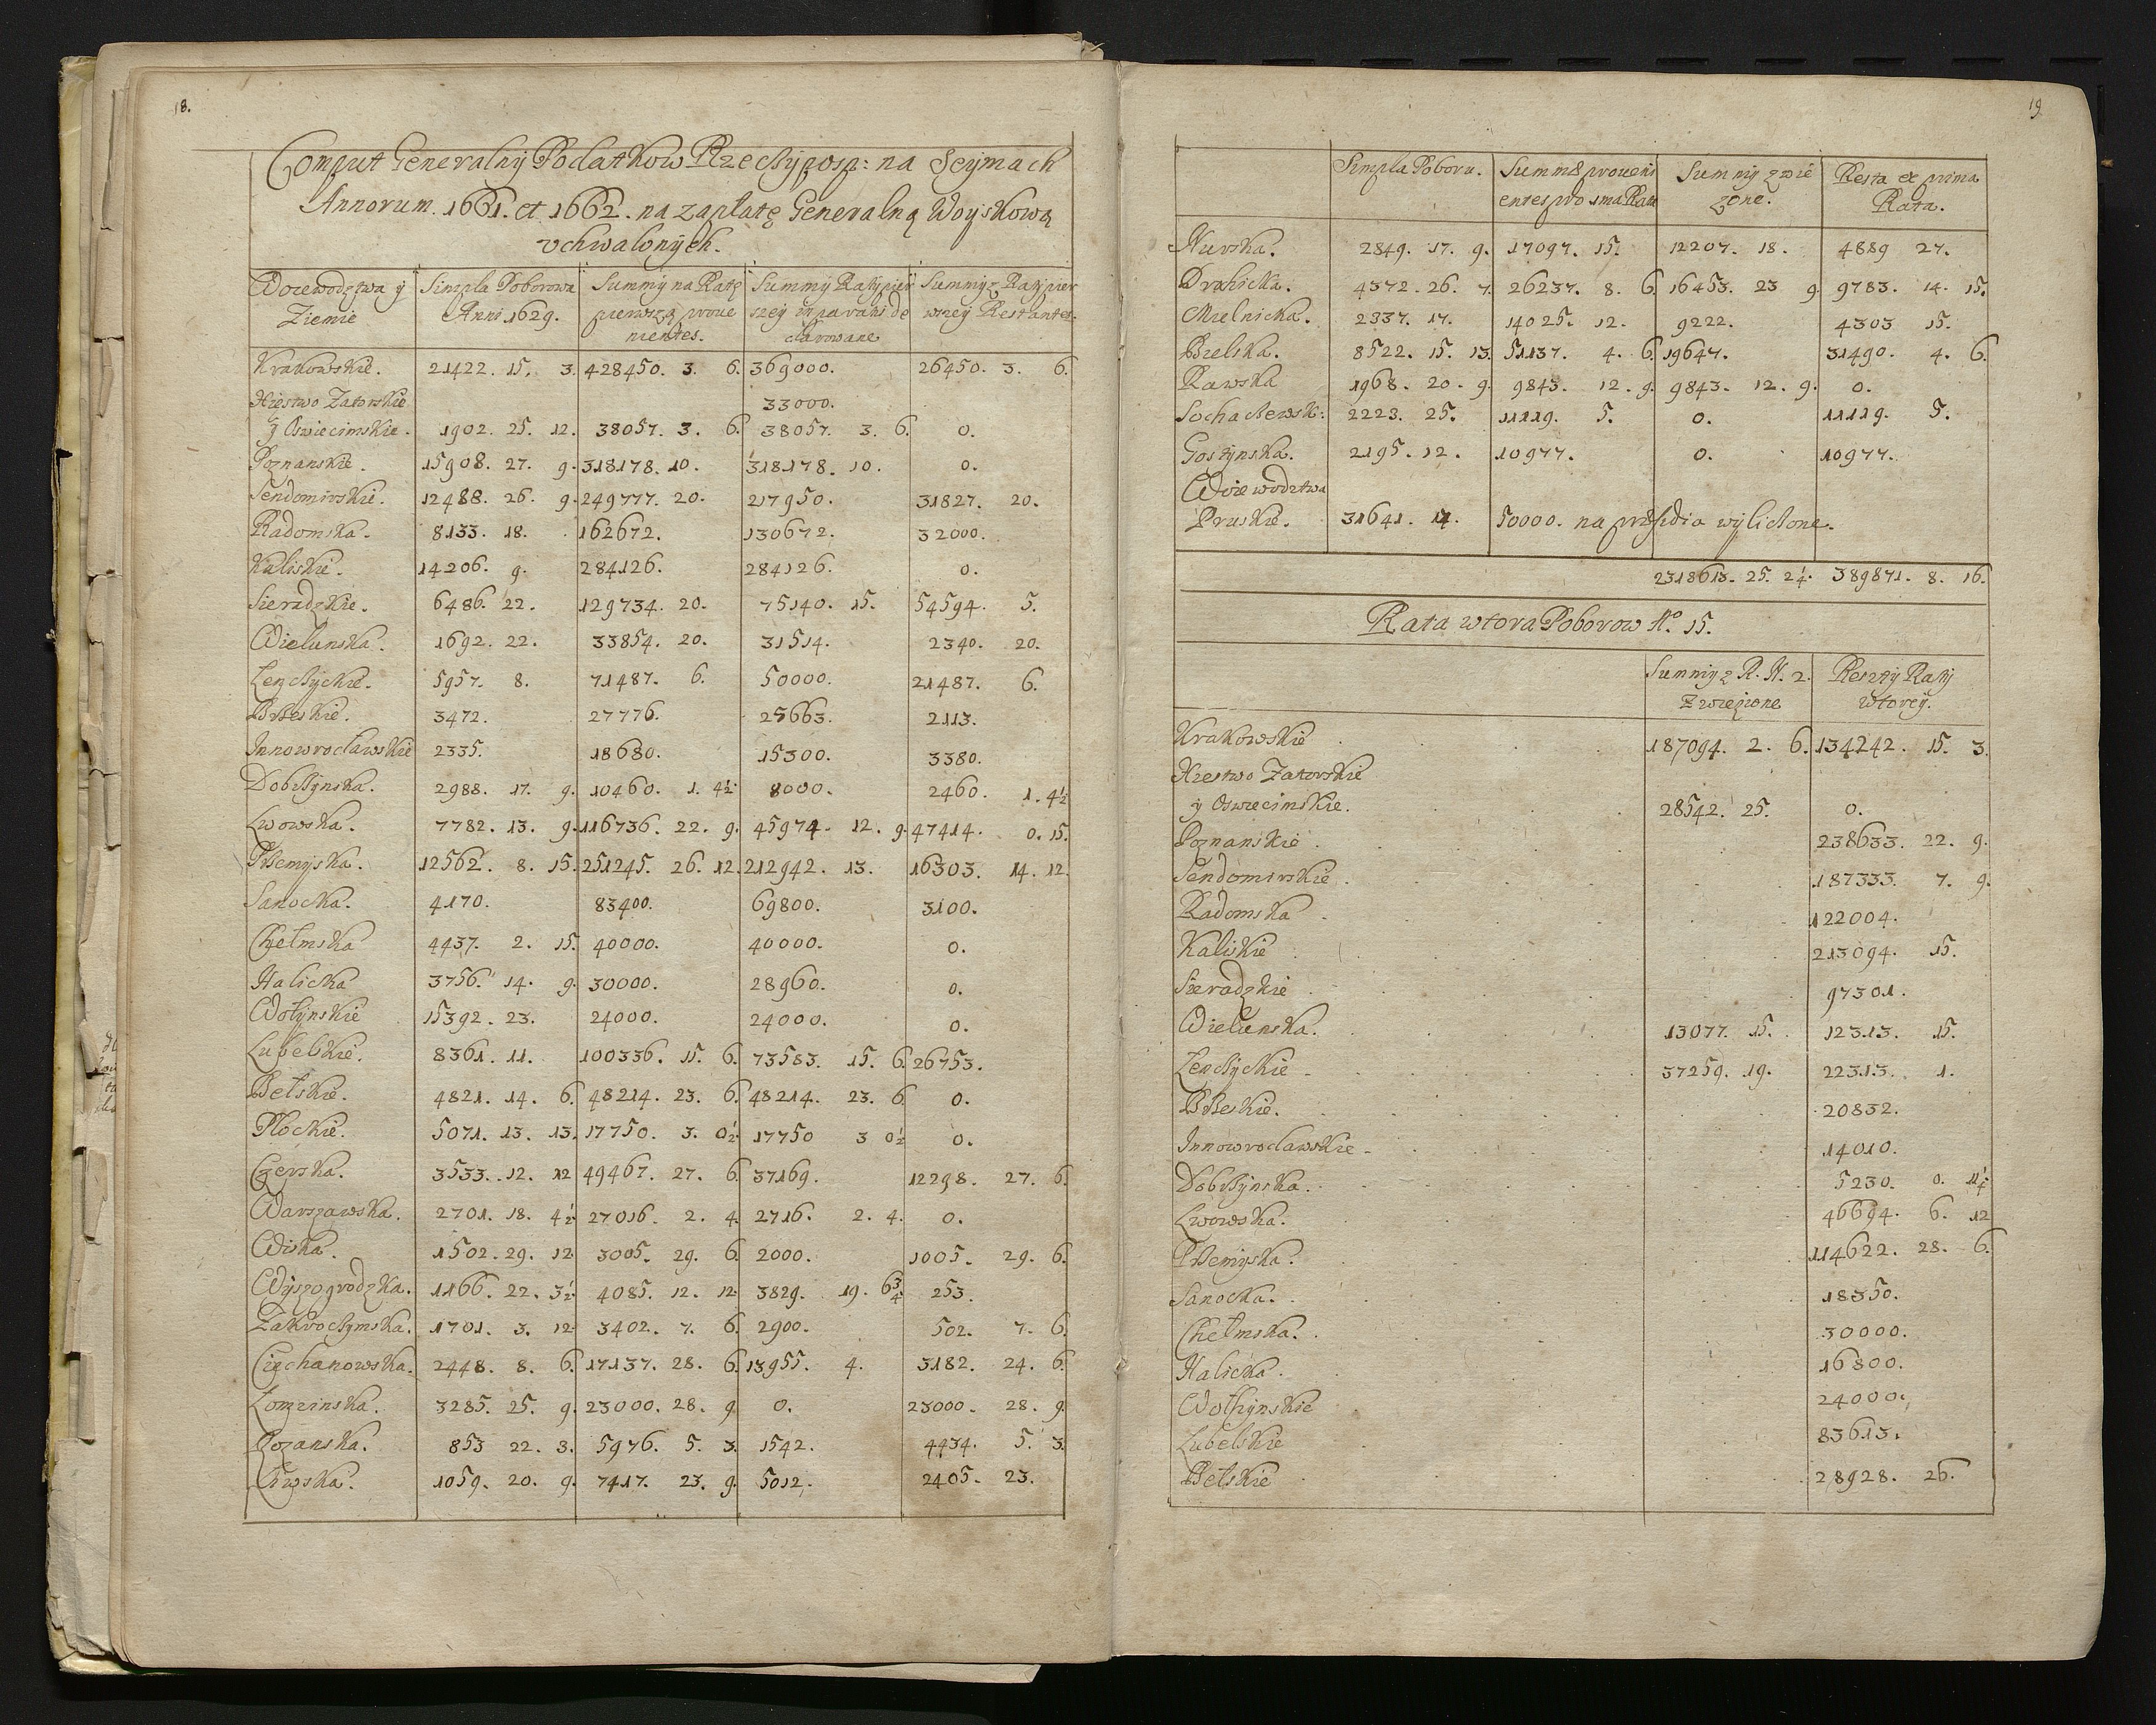 18.
Comput Generalny Podatkow Rzeczyposp: na Seymach
Annorum. 1661. et 1662. na zapłatę Generalną Woyskową
vchwalonych.
Woiewodztwa y Simpla Poborowa Summy na Ratę Summy Raty pier Summy z Raty pier
Ziemie Anni 1629. pierwszą proue szey in paratis de wszey Restantes.
nientes. clarowane
Krakowskie. 21422. 15. 3. 428450. 3. 6. 369000. 26450. 3. 6.
Xięstwo Zatorskie 33000.
y Oswiecimskie. 1902. 25. 12. 38057. 3. 6. 38057. 3. 6. 0.
Poznanskie. 15908. 27. 9. 318178. 10. 318178. 10. 0.
Sendomirskie. 12488. 26. 9. 249777. 20. 217950. 31827. 20.
Radomska. 8133. 18. 162672. 130672. 32000.
Kaliskie. 14206. 9. 284126. 284126. 0.
Sieradzkie. 6486. 22. 129734. 20. 75140. 15. 54594. 5.
Wielunska. 1692. 22. 33854. 20. 31514. 2340. 20.
Lenczyckie. 5957. 8. 71487. 6. 50000. 21487. 6.
Brzeskie. 3472. 27776. 25663. 2113.
Innowrocławskie 2335. 18680. 15300. 3380.
Dobrzynska. 2988. 17. 9. 10460. 1. 4½ 8000. 2460. 1. 4½
Lwowska. 7782. 13. 9. 116736. 22. 9. 45974. 12. 9. 47414. 0. 15.
Przemyska. 12562. 8. 15. 251245. 26. 12. 212942. 13. 16303. 14. 12.
Sanocka. 4170. 83400. 69800. 3100.
Chełmska 4437. 2. 15. 40000. 40000. 0.
Halicka 3756. 14. 9. 30000. 28960. 0.
Wołynskie 15392. 23. 24000. 24000. 0.
Lubelskie. 8361. 11. 100336. 15. 6. 73583. 15. 6. 26753.
Bełskie. 4821. 14. 6. 48214. 23. 6. 48214. 23. 6. 0.
Płockie. 5071. 13. 13. 17750. 3. 0½ 17750 3 0½ 0.
Czerska. 3533. 12. 12 49467. 27. 6. 37169. 12298. 27. 6.
Warszawska. 2701. 18. 4½ 27016. 2. 4. 2716. 2. 4. 0.
Wiska. 1502. 29. 12 3005. 29. 6 2000. 1005. 29. 6.
Wyszogrodzka. 1166. 22. 3½ 4085. 12. 12 3829. 19. 6¾ 253.
Zakroczymska. 1701. 3. 12 3402. 7. 6. 2900. 502. 7. 6.
Ciechanowska. 2448. 8. 6. 17137. 28. 6. 13955. 4. 3182. 24. 6.
Lomzinska. 3285. 25. 9. 23000. 28. 9 0. 23000. 28. 9.
Rozanska. 853 22. 3. 5976. 5. 3. 1542. 4434. 5. 3.
1059. 20. 9. 7417. 23. 9. 5012. 2405. 23.
19
Simpla Poboru. Summæ proueni Summy zwie Resta ex prima
entes pro 1ma Rata zone. Rata.
Nurska. 2849. 17. 9. 17097. 15. 12207. 18. 4889 27.
Drohicka. 4372. 26. 7. 26237. 8. 6. 16453. 23 9. 9783. 14. 15.
Mielnicka. 2337. 17. 14025. 12. 9222. 4303 15.
Bielska. 8522. 15. 13. 51137. 4. 6. 19647. 31490. 4. 6.
Rawska 1968. 20. 9. 9843. 12. 9. 9843. 12. 9. 0.
Sochaczewsk: 2223. 25. 11119. 5. 0. 11119. 5.
Gostynska. 2195. 12. 10977. 0. 10977.
Woiewodztwa
Pruskie. 31641. 14. 50000. na præsidia wyliczone.
2318613. 25. 2¼. 389871. 8. 16.
Rata wtora Poborow No. 15.
Summy z R. N. 2. Reszty Raty
Zwiezione wtorey.
Krakowskie 187094. 2. 6. 134242. 15. 3.
Xięstwo Zatorskie
y Oswiecimskie. 28542. 25. 0.
Poznanskie 238633. 22. 9.
Sendomirskie 187333. 7. 9.
Radomska 122004.
Kaliskie 213094. 15.
Sieradzkie 97301.
Wielunska. 13077. 15. 12313. 15.
Lenczyckie 37259. 19. 22313. 1.
Brzeskie. 20832.
Innowrocławskie 14010.
Dobrzynska. 5230. 0. 11¼
Lwowska. 46694. 6. 12
Przemyska. 114622. 28. 6.
Sanocka. 18350.
Chełmska. 30000.
Halicka. 16800.
Wołynskie 24000.
Lubelskie 83613.
Bełskie 28928. 26.